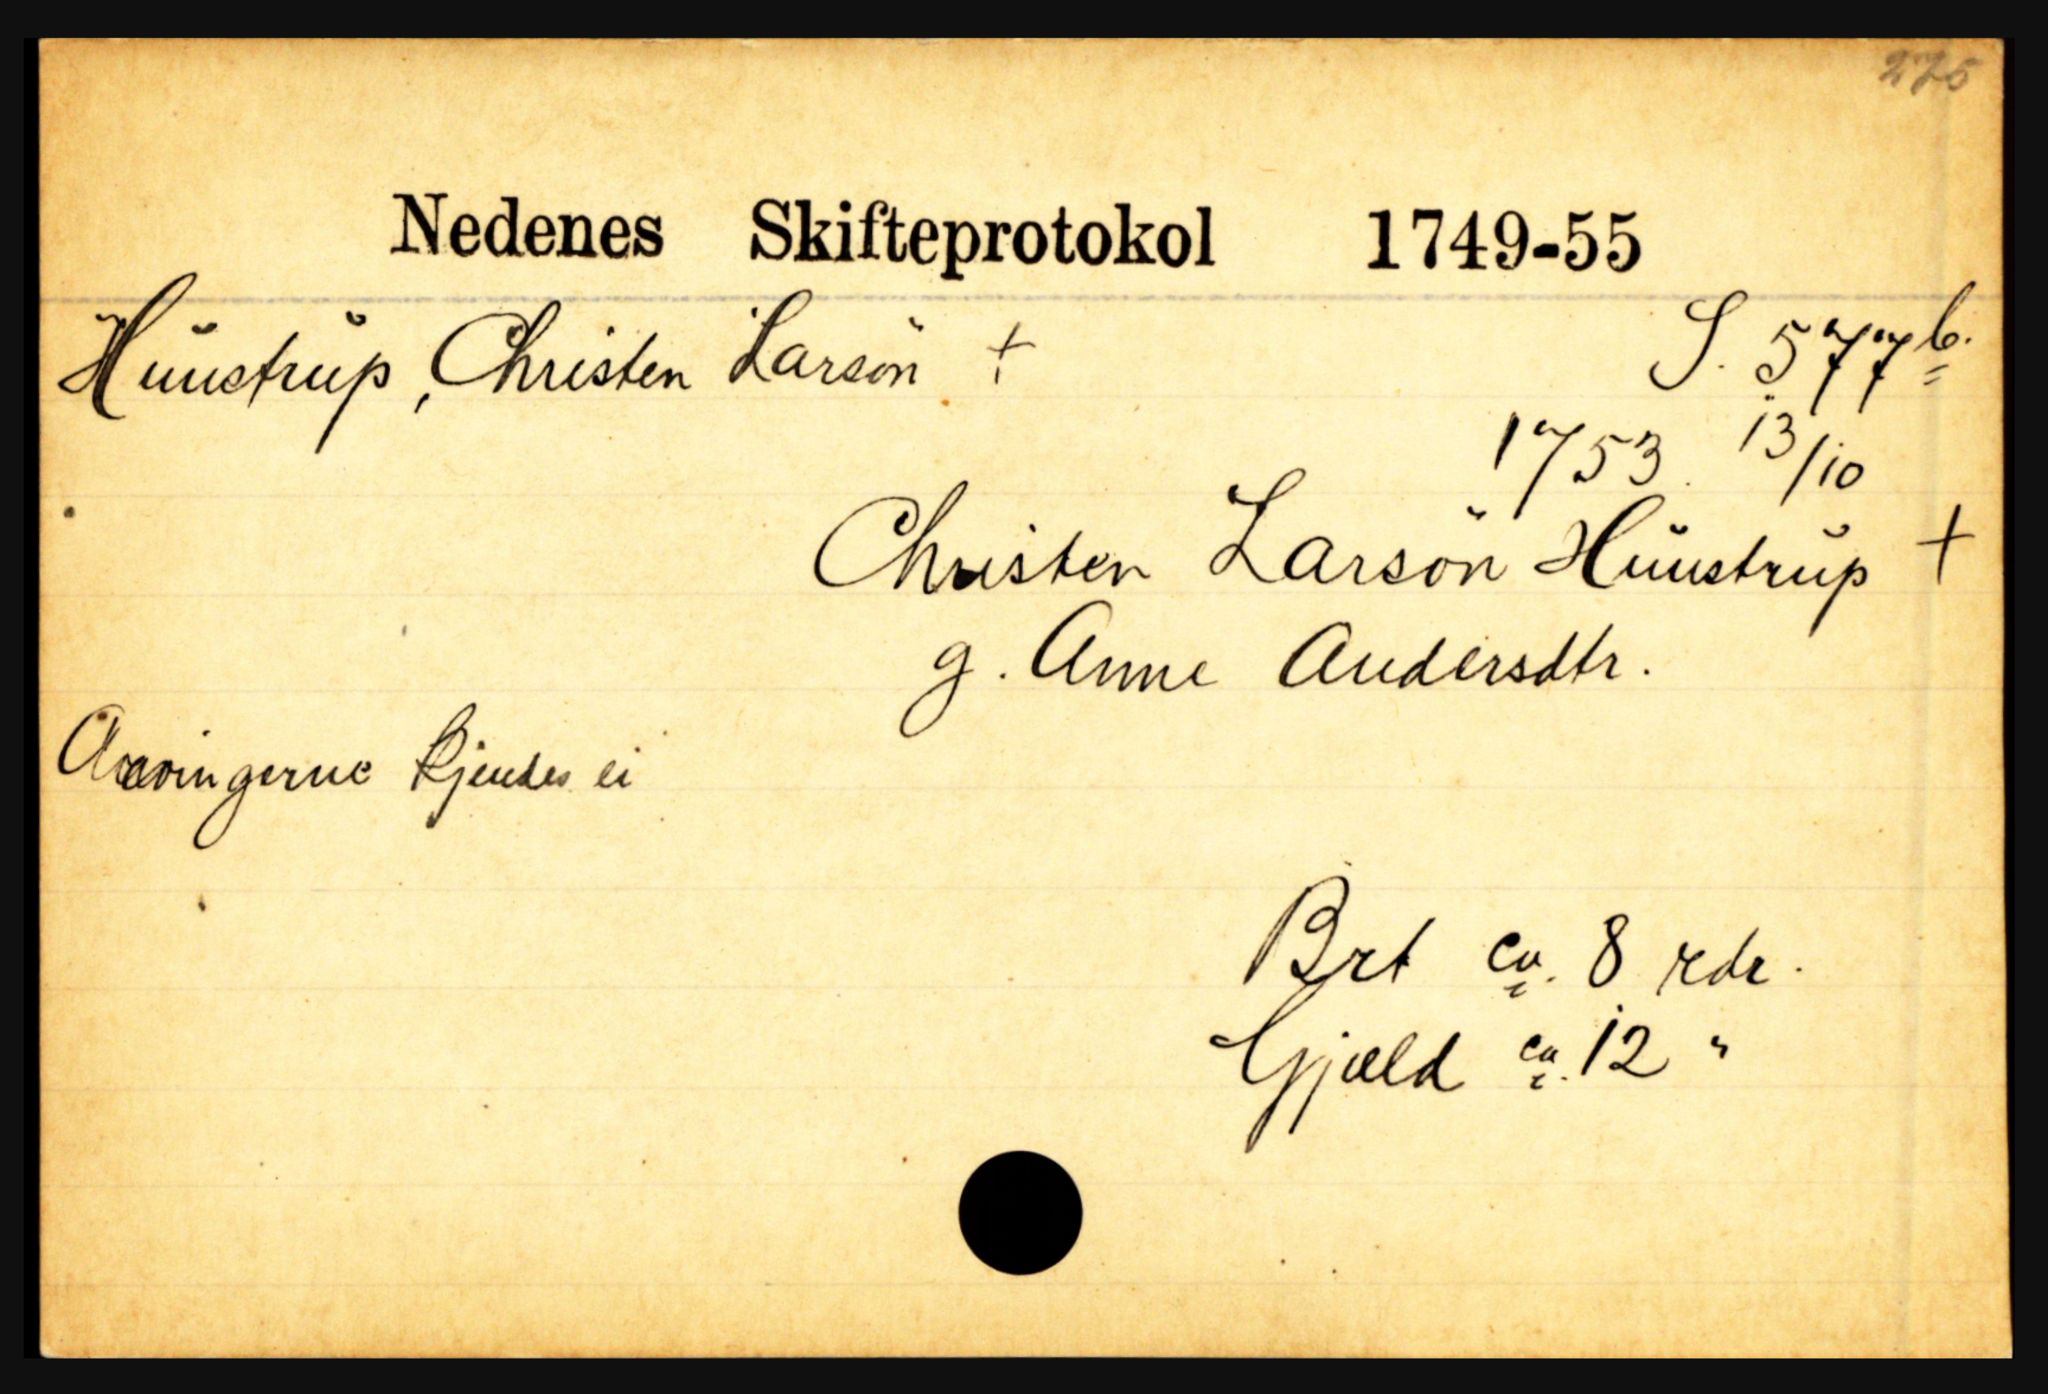 275
Nedenes Skifteprotokol 1749-55
Huustrup, Christen Larsön + S. 577b.
1753. 13/10
Christen Larsön Huustrup +
g. Anne Andersdtr.
Arvingerne kjendes ei
Brt ca. 8 rdr.
Gjæld ca. 12 "